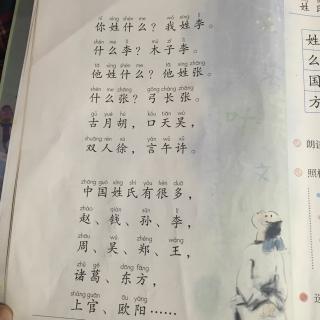 nǐ xìng shén me wǒ xìng lǐ
你姓什么？我姓李。
shén me lǐ mù zǐ lǐ
什么李？木子李。
tā xìng shén me tā xìng zhāng
他姓什么？他姓张。
shén me zhāng gōng cháng zhāng
什么张？弓长张。
gǔ yuè hú kǒu tiān wú
古月胡，口天吴，
shuāng rén xú yán wǔ xǔ
双人徐，言午许。
zhōng guó xìng shì yǒu hěn duō
中国姓氏有很多，
zhào qián sūn lǐ
赵、钱、孙、李，
zhōu wú zhèng wáng
周、吴、郑、王，
zhū gě dōng fāng
诸葛、东方，
shàng guān ōu yáng
上官、欧阳……
姓
么
国
方
朗读
照样